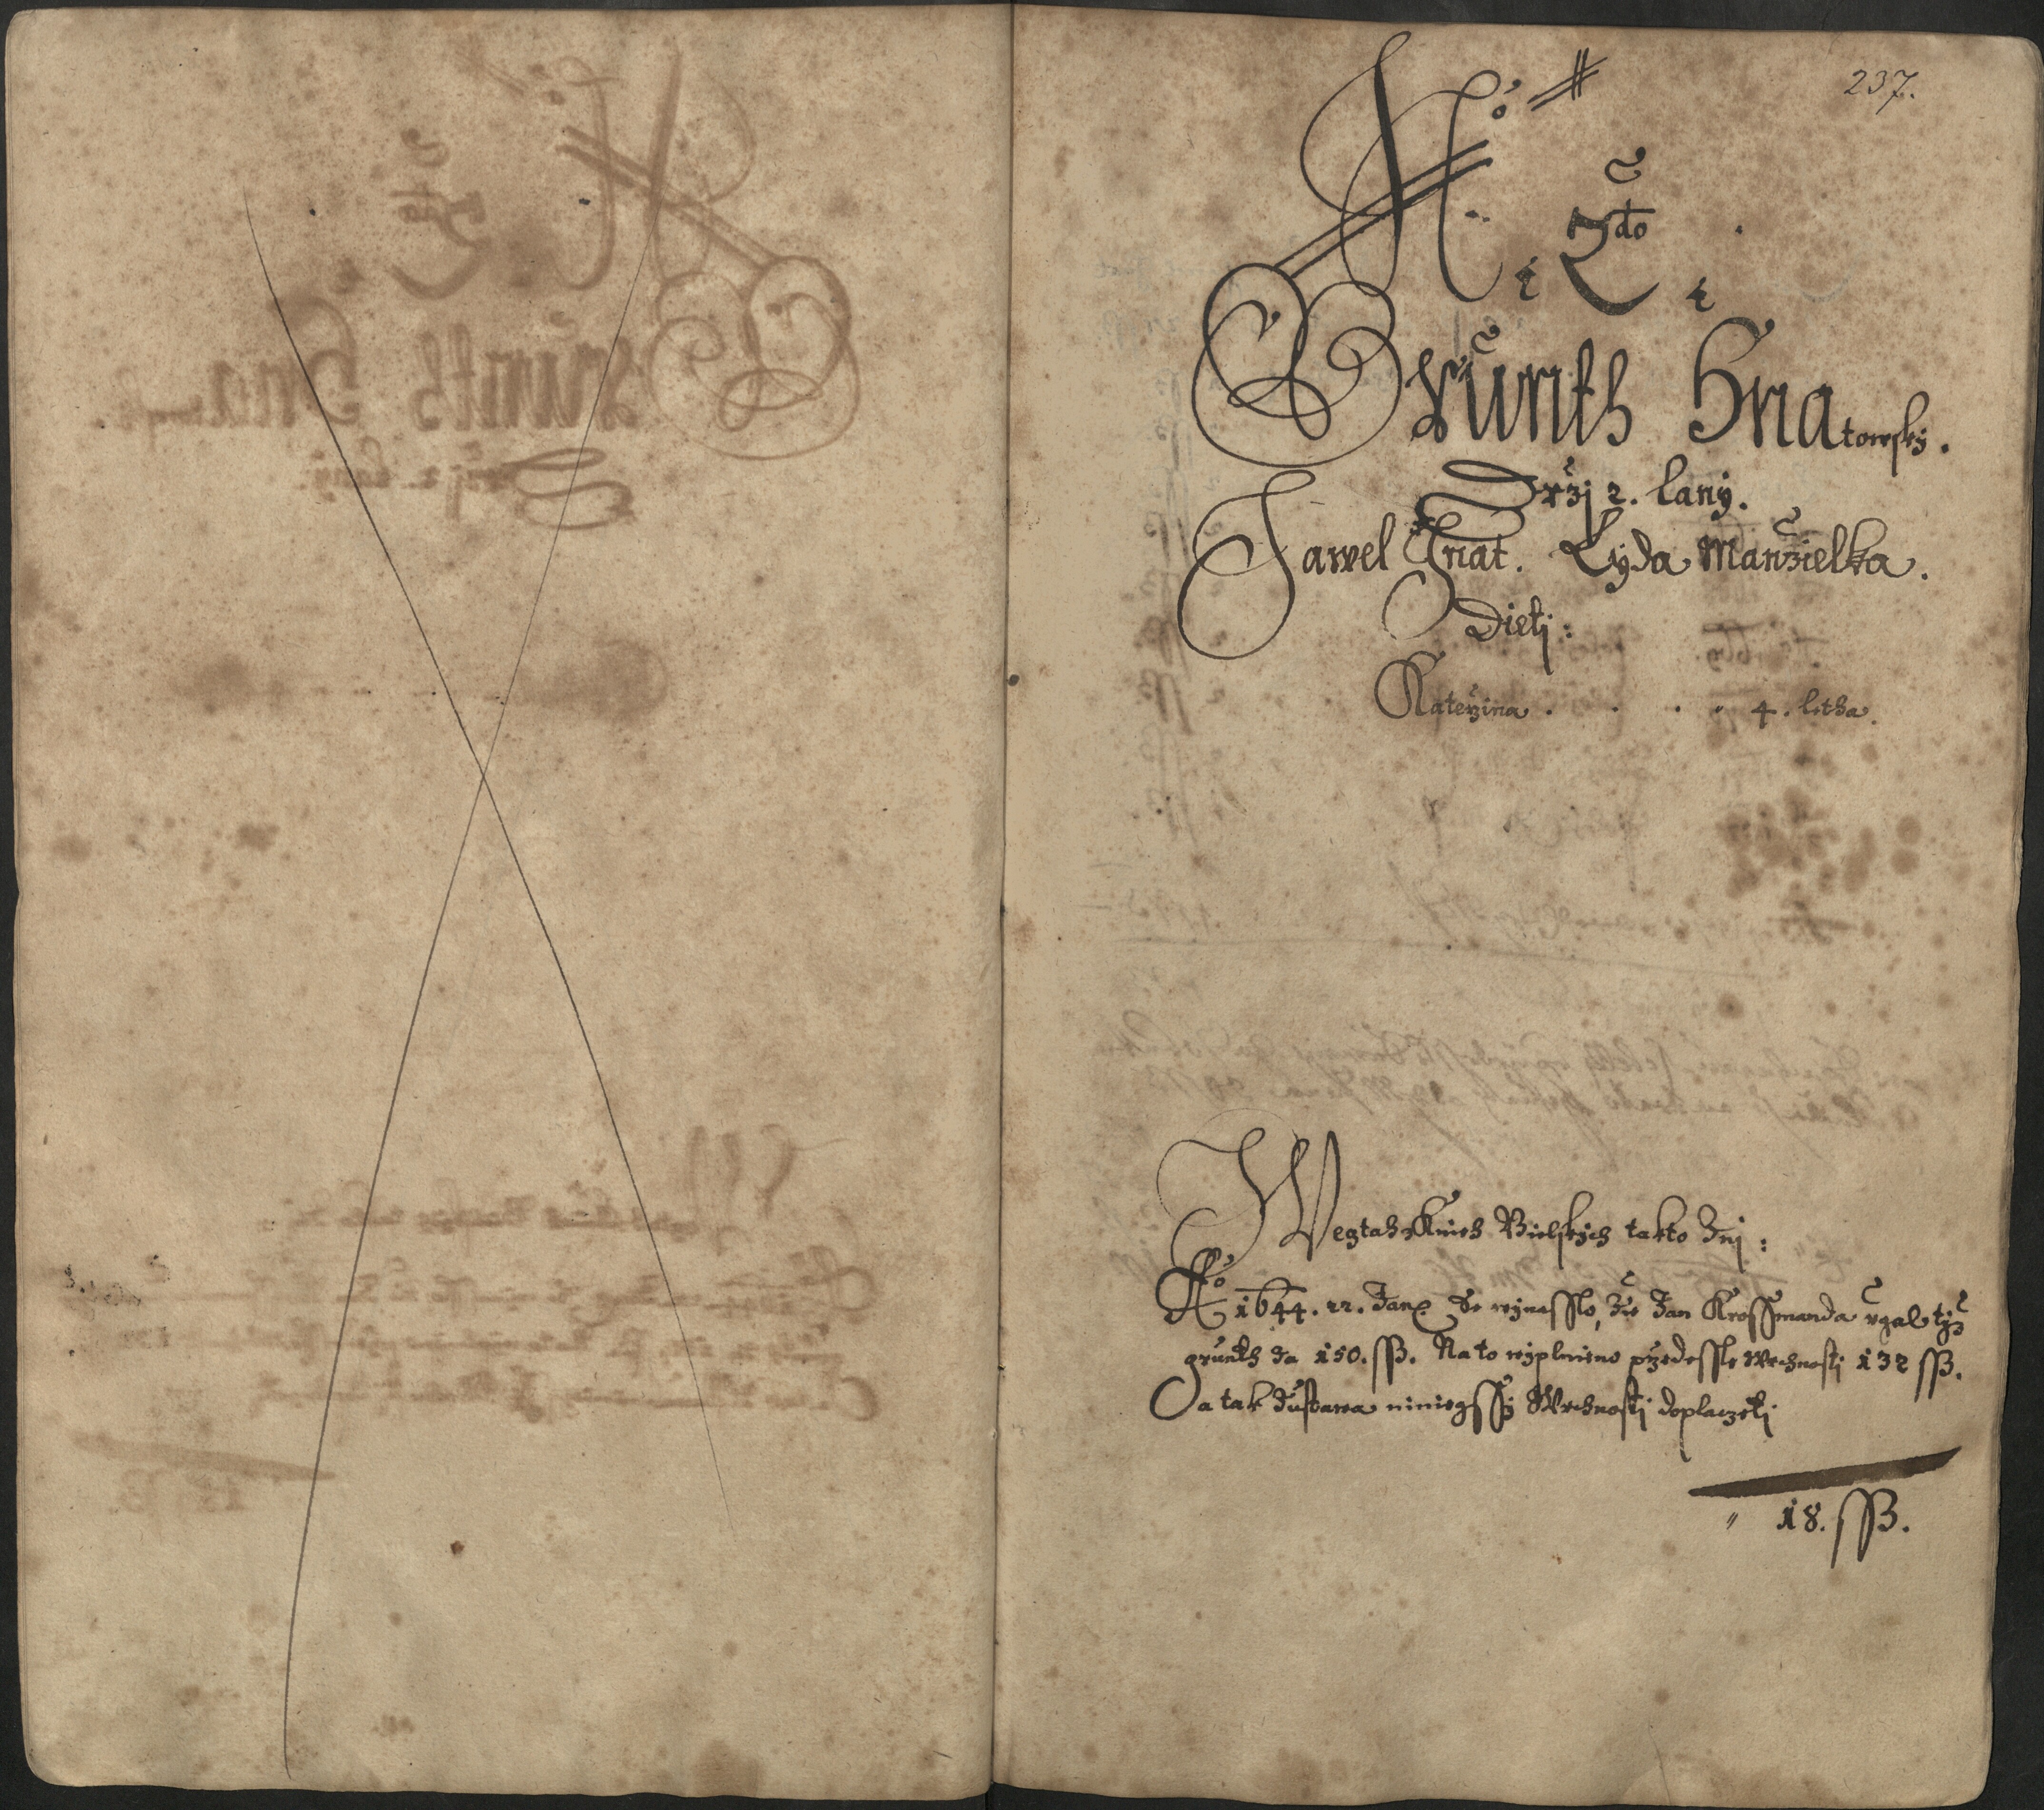 237.
No 2do
Grünth Hnatowský.
Drží 2. lany.
Pawel Hnat. Lyda Manžielka.
Dietj:
Kateržina . . . . 4. letha.
Weytah z Knieh Bielskych takto znj:
Ao 1644. 22. Jan. Se wynasslo, že Jan Krossmanda ugal tyž
grunth za 150. ssß. Na to wyplnieno przedessle Wrchnosti 132 ssß.
a tak zustawa niniegssy Wrchnosti doplaczeti
18. ssß.